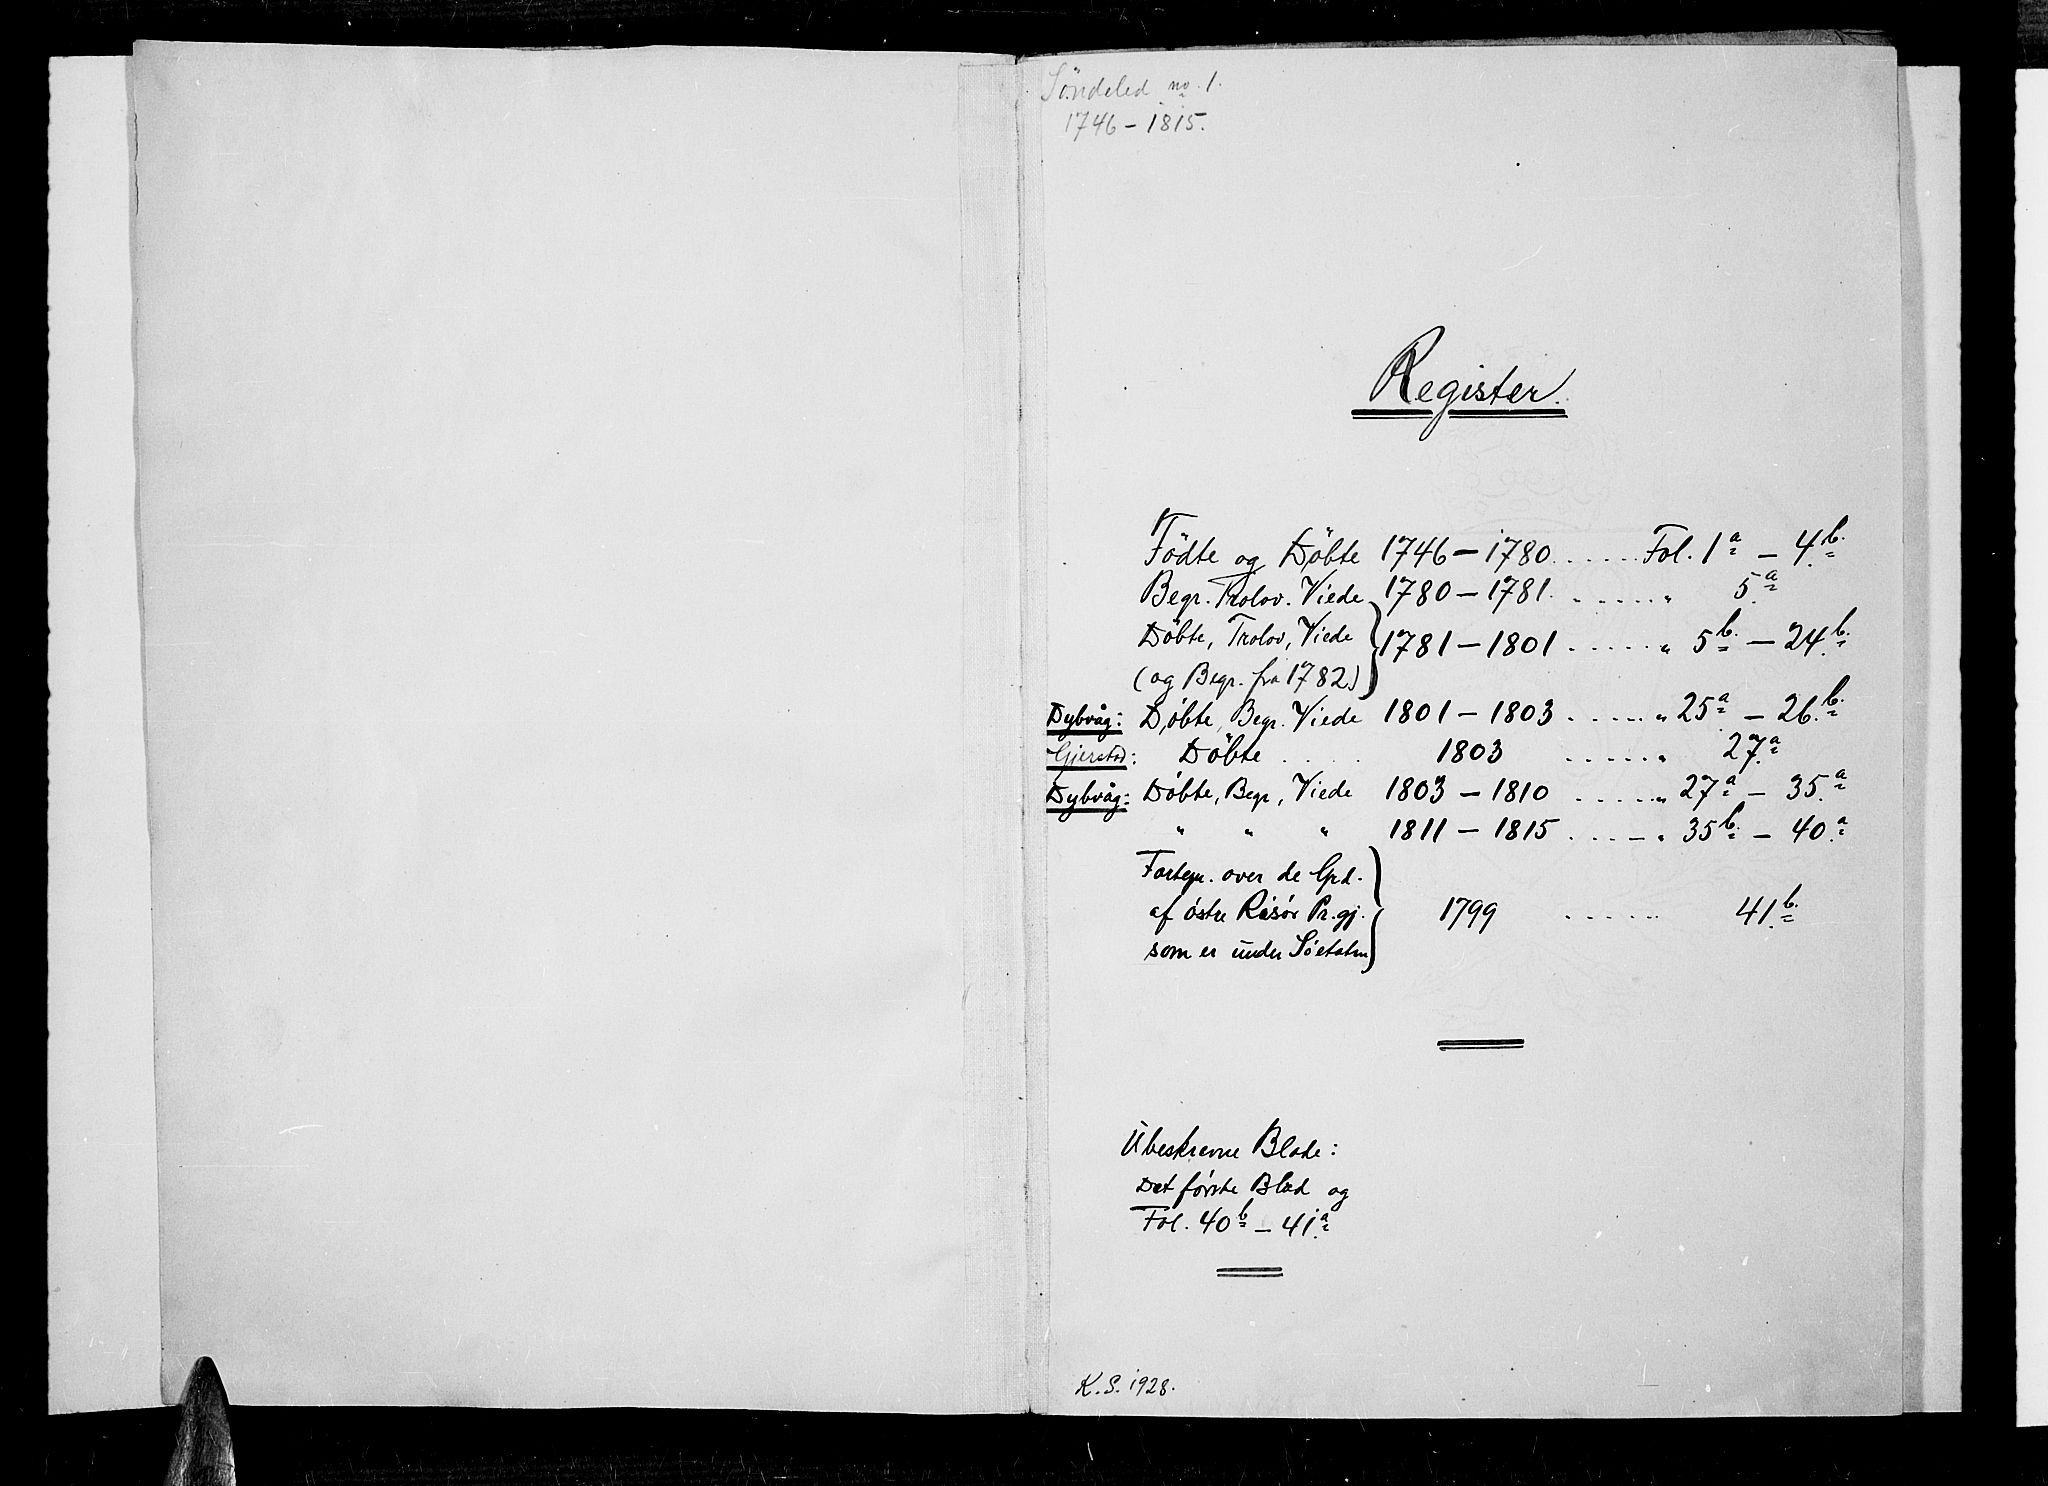 Söndeled no. 1.
1746 – 1815.
Register.
Födte og Döbte 1746 – 1780 ...... Fol. 1a – 4b.
Begr. Trolov. Viede 1780 – 1781. ...... " 5a
Döbte, Trolov, Viede
(og Begr. fra 1782) } 1781 – 1801 ...... " 5b. – 24b.
Dybvåg: Döbte, Begr. Viede 1801 – 1803 ...... " 25a – 26b.
Gjerstad: Döbte .... 1803 ...... " 27a
Dybvåg: Döbte, Begr, Viede 1803 – 1810 ...... " 27a – 35a
" " " 1811 – 1815 ...... " 35b – 40a
Fortegn. over de Grd.
af östre Risör Pr.gj. } 1799 ...... 41b.
som er under Söetaten
Ubeskrevne Blade:
Det förste Blad og
Fol. 40b – 41a
K. S. 1928.